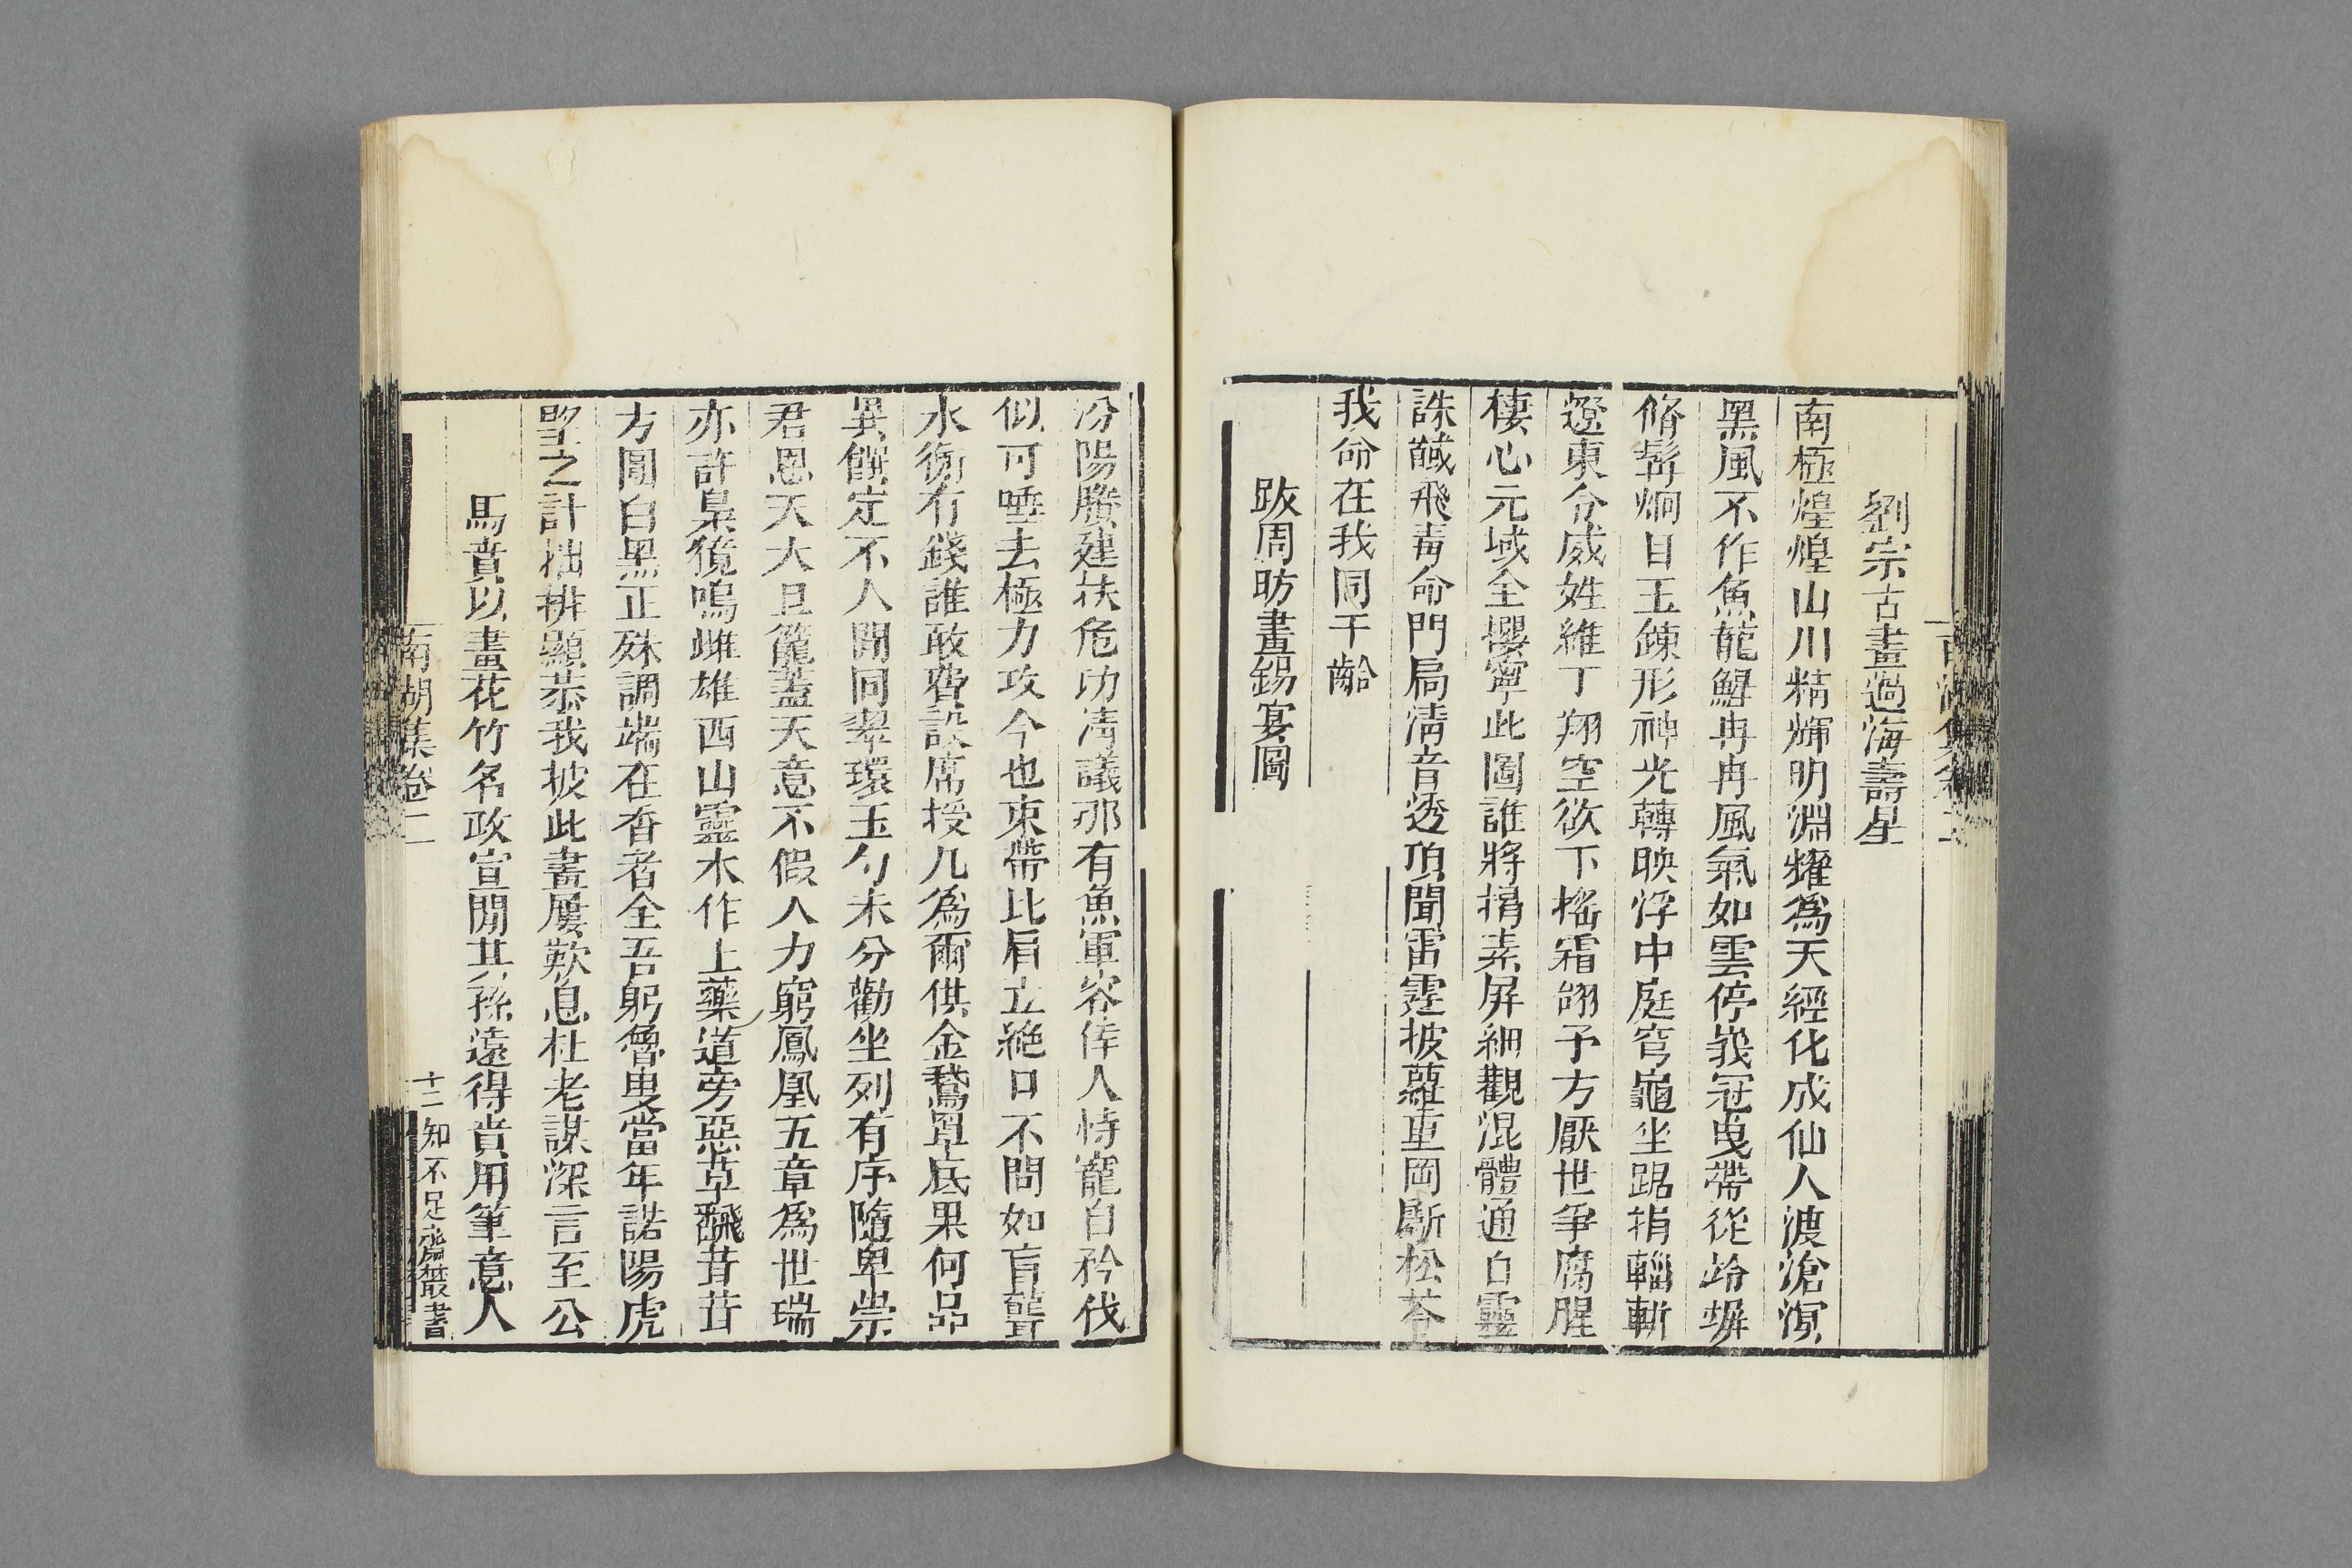 劉宗古畫過海壽星
南極煌煌山川精輝明淵耀爲天經化成仙人渡滄溟
黑風不作魚龍鱘冉冉風氣如雲停峩冠曳帶從岭塀
脩髯炯目玉錬形神光轉映浮中庭穹龜坐踞捐輜軿
遼東分威姓維丁翔空欲下搖霜翎予方厭世爭腐腥
棲心元域全攖寧此圖誰將捐素屏細觀混體通白靈
誅馘飛靑命門扃淸音透頂聞雷霆披蘿重岡斸松苓
我命在我同千齡
跋周昉畫錫宴圖
汾陽賸建扶危功淸議那有魚軍容倖人恃寵自矜伐
似可唾去極力攻今也束帶比肩立絕口不問如盲聾
水衡有錢誰敢費設席授几爲爾供金鵞罩底果何品
異饌定不人閒同翠環玉勺未分勸坐列有序隨卑崇
君恩天大且籠蓋天意不假人力窮鳳凰五章爲世瑞
亦許梟獍鳴雌雄西山靈木作上藥道旁惡草飜茸茸
方圓白黑正殊調端在香者全吾躬僧曳當年諾陽虎
墅之計拙排顯恭我披此畫屢歎息杜老謀深言至公
馬賁以畫花竹名政宣閒其孫遠得貴用筆意人
南湖集卷二
十二 知不足齋叢書